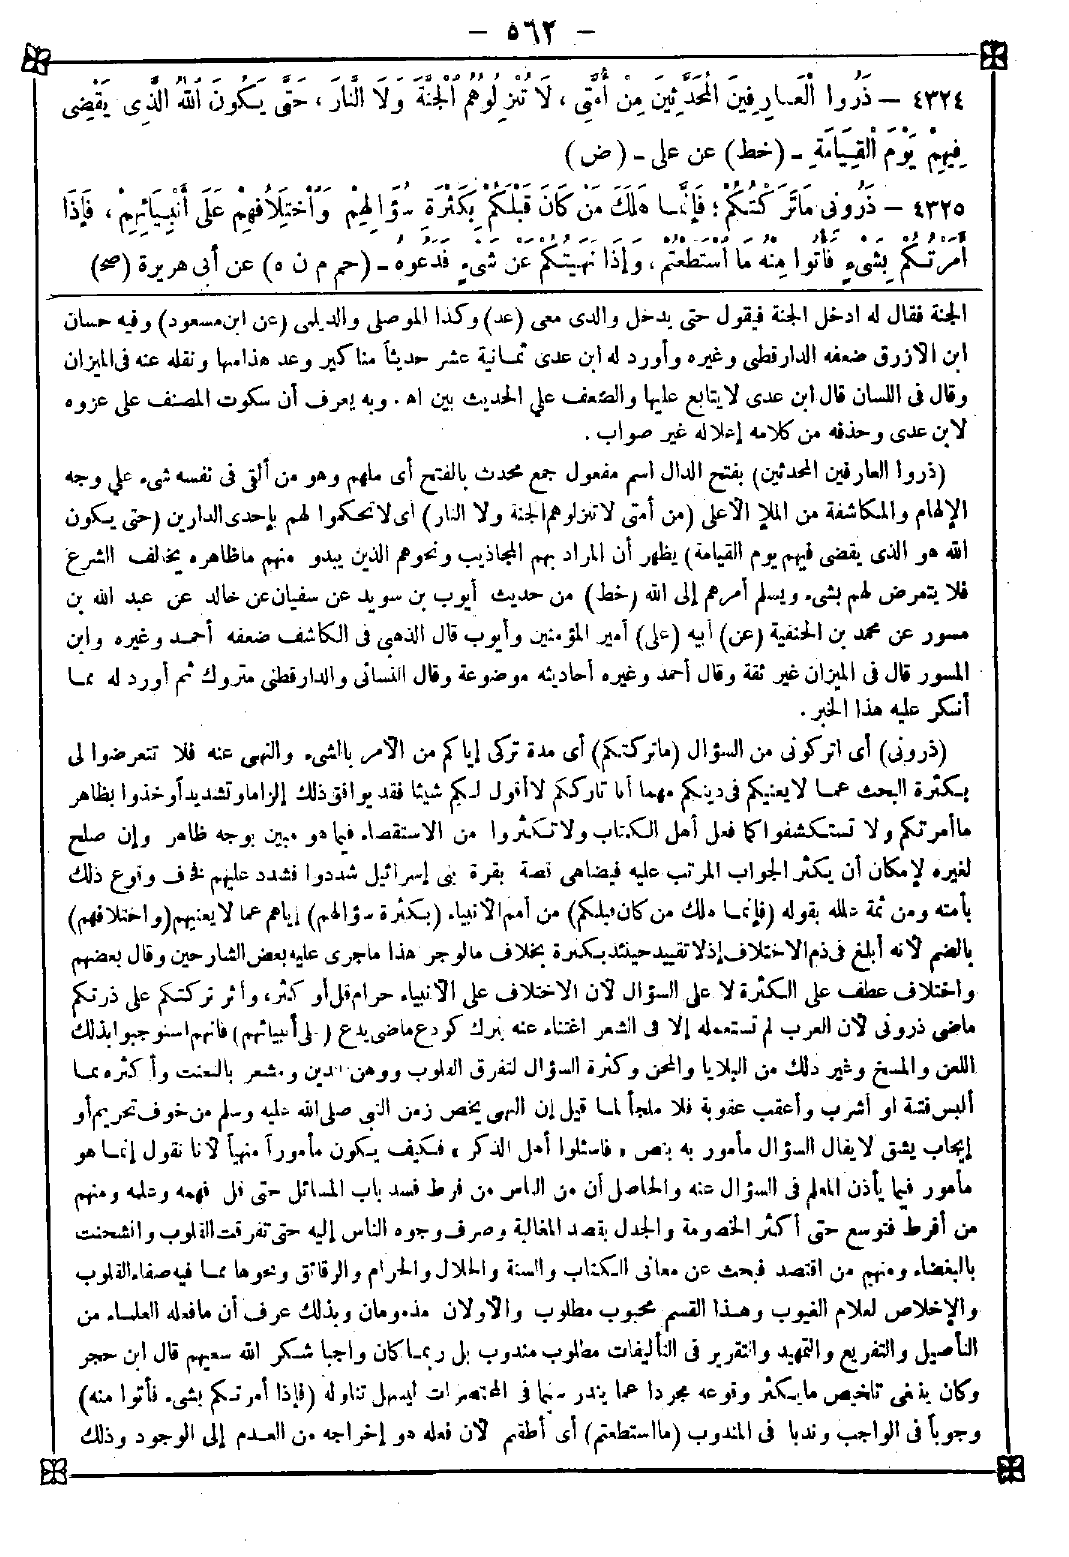 — ٥٦٢ —
٤٣٢٤ — ذَرُوا الْعَارِفِينَ الْمُحَدَّثِينَ مِنْ أُمَّتِى ، لَا تُنْزِلُوهُمُ الْجَنَّةَ وَلَا النَّارَ ، حَتَّى يَكُونَ اللهُ الَّذِى يَقْضِى
فِيهِمْ يَوْمَ الْقِيَامَةِ ـ (خط) عن على ـ (ض)
٤٣٢٥ — ذَرُونِى مَاتَرَكْتُكُمْ ؛ فَإِنَّمَا هَلَكَ مَنْ كَانَ قَبْلَكُمْ بِكَثْرَةِ سُؤَالِهِمْ وَاخْتِلَافِهِمْ عَلَى أَنْبِيَائِهِمْ ، فَإِذَا
أَمَرْتُكُمْ بِشَىْءٍ فَأْتُوا مِنْهُ مَا اسْتَطَعْتُمْ ، وَإِذَا نَهَيْتُكُمْ عَنْ شَىْءٍ فَدَعُوهُ ـ (حم م ن ه) عن أبى هريرة (صح)
الجنة فقال له ادخل الجنة فيقول حتى يدخل والدى معى (عد) وكذا الموصلى والديلمى (عن ابن مسعود) وفيه حسان
ابن الازرق ضعفه الدارقطى وغيره وأورد له ابن عدى ثمانية عشر حديثاً مناكير وعد هذا منها ونقله عنه فى الميزان
وقال فى اللسان قال ابن عدى لا يتابع عليها والضعف على الحديث بين اه . وبه يعرف أن سكوت المصنف على عزوه
لابن عدى وحذفه من كلامه إعلاله غير صواب .
(ذروا العارفين المحدثين) بفتح الدال اسم مفعول جمع محدث بالفتح أى ملهم وهو من ألقى فى نفسه شىء على وجه
الإلهام والمكاشفة من الملإ الأعلى (من أمتى لا تنزلوهم الجنة ولا النار) أى لا تحكموا لهم بإحدى الدارين (حتى يكون
الله هو الذى يقضى فيهم يوم القيامة) يظهر أن المراد بهم المجاذيب ونحوهم الذين يبدو منهم ما ظاهره يخالف الشرع
فلا يتعرض لهم بشىء ويسلم أمرهم إلى الله (خط) من حديث أيوب بن سويد عن سفيان عن خالد عن عبد الله بن
مسور عن محمد بن الحنفية (عن) أبيه (على) أمير المؤمنين وأيوب قال الذهبى فى الكاشف ضعفه أحمد وغيره وابن
المسور قال فى الميزان غير ثقة وقال أحمد وغيره أحاديثه موضوعة وقال النسائى والدارقطنى متروك ثم أورد له مما
أنكر عليه هذا الخبر .
(ذرونى) أى اتركونى من السؤال (ماتركتكم) أى مدة تركى إياكم من الأمر بالشىء والنهى عنه فلا تتعرضوا لى
بكثرة البحث عما لا يعنيكم فى دينكم مهما أنا تارككم لا أقول لكم شيئا فقد يوافق ذلك إلزاما وتشديدا وخذوا بظاهر
ما أمرتكم ولا تستكشفوا كما فعل أهل الكتاب ولا تكثروا من الاستقصاء فيما هو مبين بوجه ظاهر وإن صلح
لغيره لإمكان أن يكثر الجواب المرتب عليه فيضاهى قصة بقرة بنى إسرائيل شددوا فشدد عليهم فخاف وقوع ذلك
بأمته ومن ثمة علله بقوله (فإنما هلك من كان قبلكم) من أمم الانبياء (بكثرة سؤالهم) إياهم عما لا يعنيهم (واختلافهم)
بالضم لأنه أبلغ فى ذم الاختلاف إذ لا تقييد حينئذ بكثرة بخلاف ما لو جر هذا ما جرى عليه بعض الشارحين وقال بعضهم
واختلاف عطف على الكثرة لا على السؤال لأن الاختلاف على الأنبياء حرام قل أو كثر، وآثر تركتكم على ذرتكم
ماضى ذرونى لأن العرب لم تستعمله إلا فى الشعر اغتناء عنه بترك كودع ماضى يدع (على أنبيائهم) فانهم استوجبوا بذلك
اللعن والمسخ وغير ذلك من البلايا والمحن وكثرة السؤال لتفرق القلوب ووهن الدين ومشعر بالتعنت وأكثره مما
ألبس فتنة او أشرب وأعقب عقوبة فلا ملجأ لما قيل إن النهى يخص زمن النبى صلى الله عليه وسلم من خوف تحريم أو
إيجاب يشق لا يقال السؤال مأمور به بنص « فاسئلوا أهل الذكر » فكيف يكون مأموراً منهياً لأنا نقول إنما هو
مأمور فيما يأذن المعلم فى السؤال عنه والحاصل أن من الناس من فرط فسد باب المسائل حتى قل فهمه وعلمه ومنهم
من أفرط فتوسع حتى أكثر الخصومة والجدل بقصد المغالبة وصرف وجوه الناس إليه حتى تفرقت القلوب وانشحنت
بالبغضاء ومنهم من اقتصد فبحث عن معانى الكتاب والسنة والحلال والحرام والرقائق ونحوها مما فيه صفاء القلوب
والإخلاص لعلام الغيوب وهذا القسم محبوب مطلوب والأولان مذمومان وبذلك عرف أن ما فعله العلماء من
التأصيل والتفريع والتمهيد والتقرير فى التأليفات مطلوب مندوب بل ربما كان واجبا شكر الله سعيهم قال ابن حجر
وكان ينبغى تلخيص ما يكثر وقوعه مجردا عما يندر سيما فى المختصرات ليسهل تناوله (فإذا أمرتكم بشىء فأتوا منه)
وجوباً فى الواجب وندبا فى المندوب (ما استطعتم) أى أطقتم لأن فعله هو إخراجه من العدم إلى الوجود وذلك